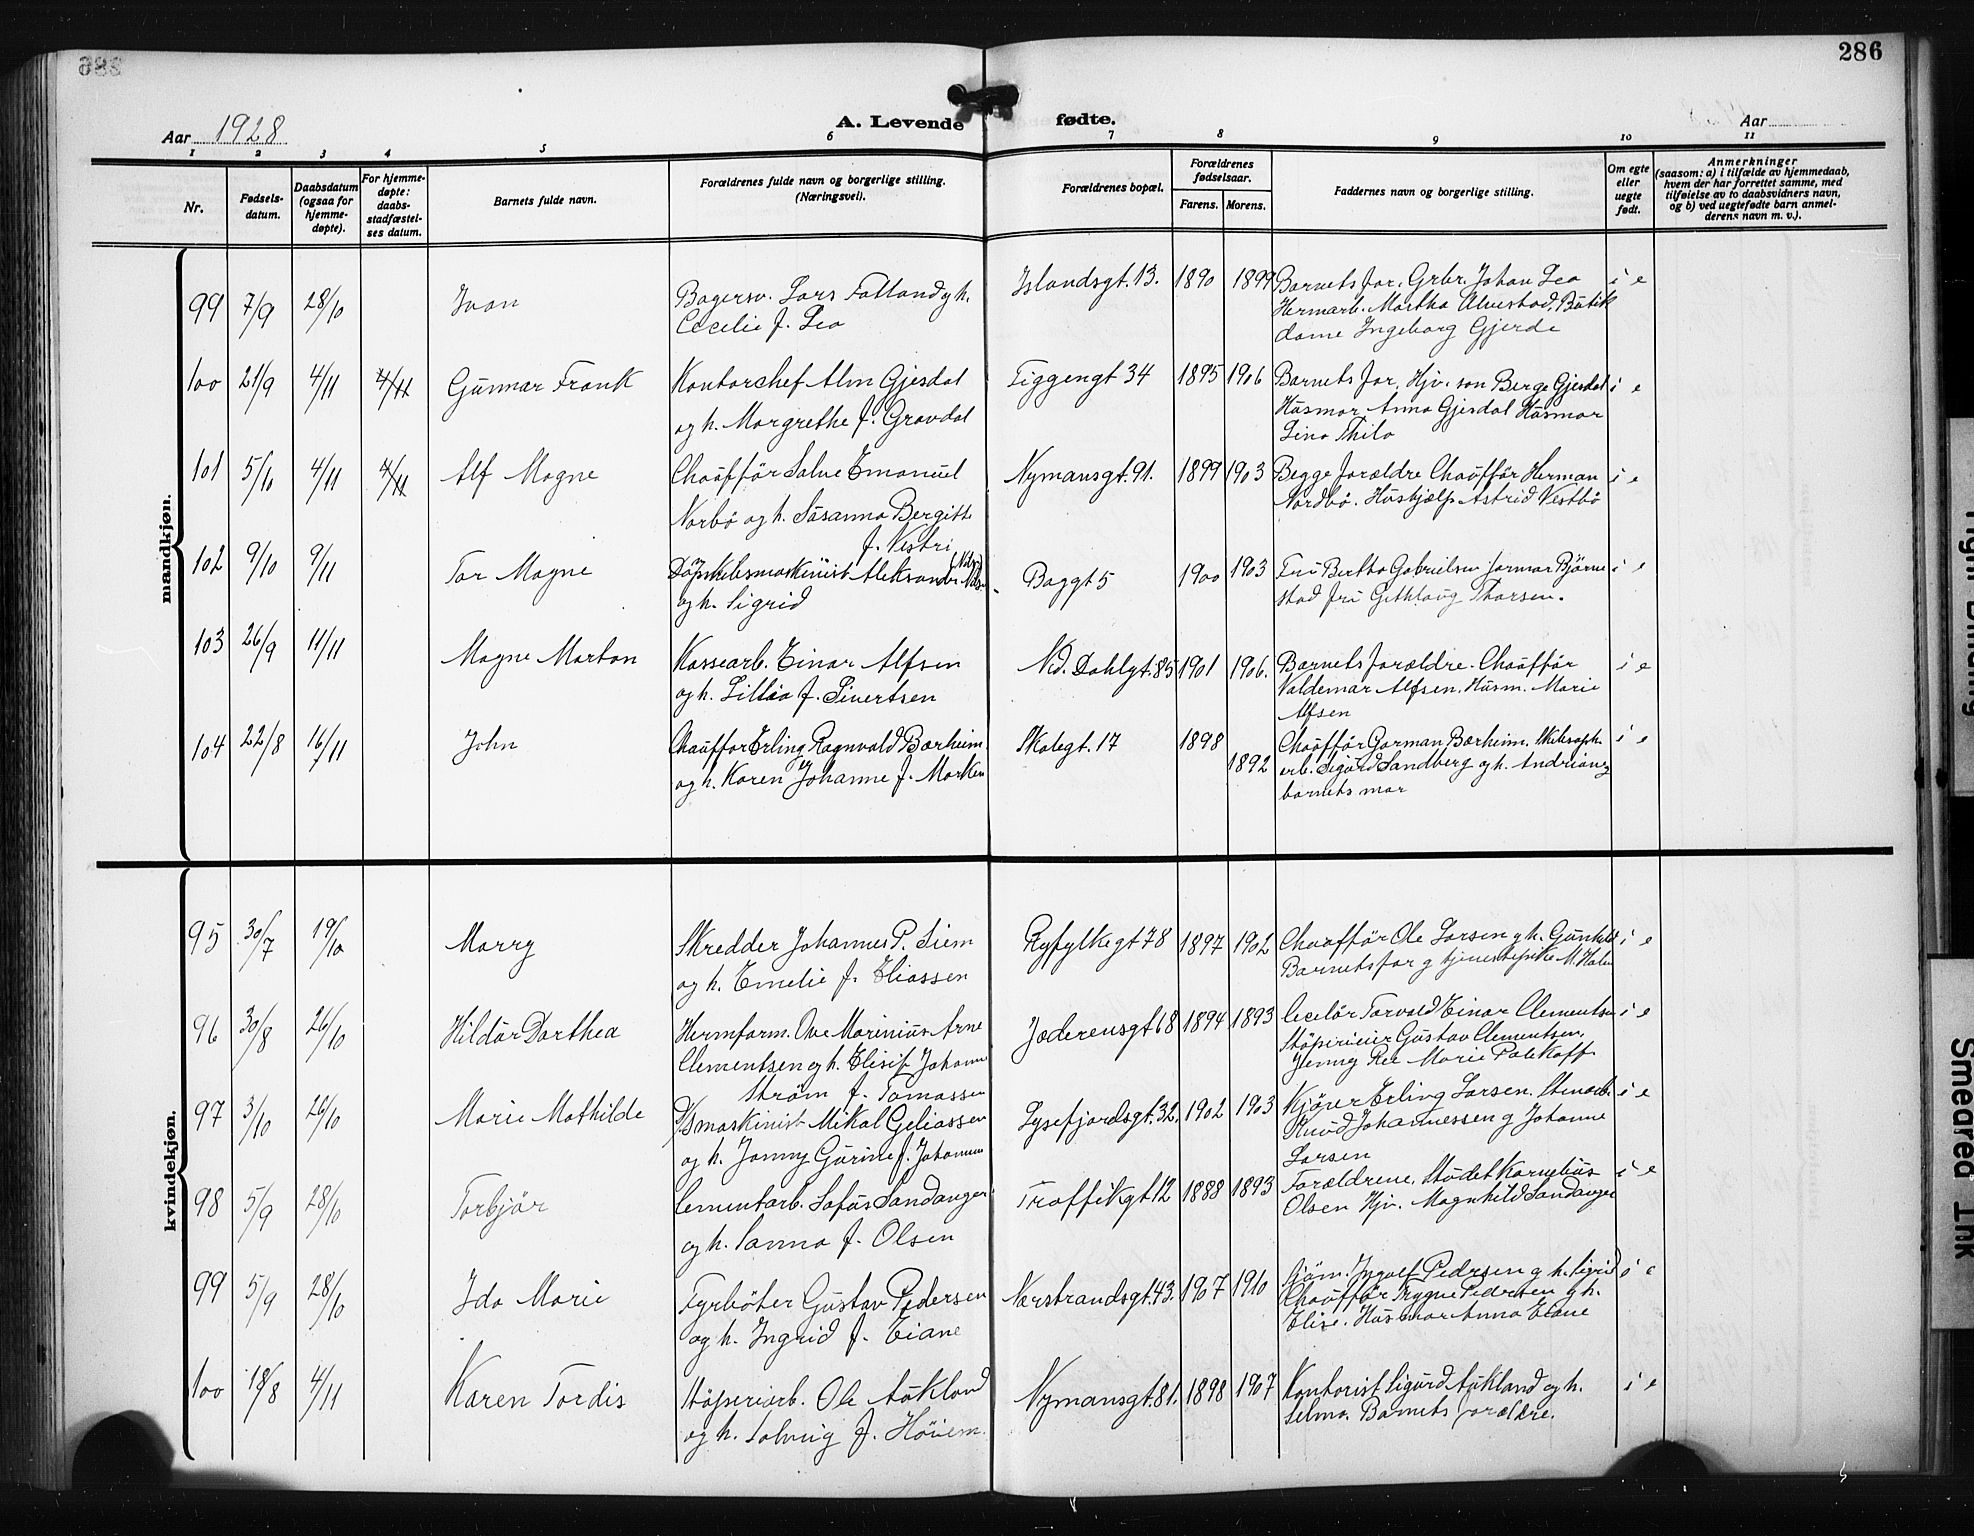 286
Aar 1928
A. Levende fødte.
Aar
1 2 3 4 5 6 7 8 9 10 11
Nr.
Fødsels-
datum.
Daabsdatum
(ogsaa for
hjemme-
døpte).
For hjemme-
døpte:
daabs-
stadfæstel-
ses datum.
Barnets fulde navn.
Forældrenes fulde navn og borgerlige stilling.
(Næringsvei).
Forældrenes bopæl.
Forældrenes
fødselsaar.
Farens. Morens.
Faddernes navn og borgerlige stilling.
Om egte
eller
uegte
født.
Anmerkninger
(saasom: a) i tilfælde av hjemmedaab,
hvem der har forrettet samme, med
tilføielse av to daabsvidners navn,
og b) ved uegtefødte barn anmel-
derens navn m. v.).
mandkjøn.
99 7/9 28/10 Ivan Bagersv. Lars Fatland g h. Islandsgt. 13. 1890 1899 Barnets far. Grbr. Johan Lea i e
Cecilie f. Lea Hermarb. Martha Alvestad, Butik
dame Ingeborg Gjerde
100 21/9 4/11 4/11 Gunnar Frank Kontorchef Alm Gjesdal Tiggengt 34 1895 1906 Barnets far, Hjv. søn Berge Gjesdal i e
og h. Margrethe f. Gravdal Husmor Anna Gjesdal Husmor
Lina Thilo
101 5/10 4/11 4/11 Alf Magne Chauffør Salve Emanuel Nymansgt. 91. 1899 1903 Begge forældre Chauffør Herman i e
Norbø og h. Susanna Bergitte Nordbø. Hushjælp Astrid Vestbø
f. Vestri
102 9/10 9/11 Tor Magne Dampskibsmaskinist Aleksander Baggt 5 1900 1903 Fru Bertha Gabrielsen Bjørne i e
og h. Sigrid stad fru Thorsen.
103 26/9 11/11 Magne Martan Kassearb. Einar Alfsen Nd. Dahlgt. 85 1901 1906. Barnets forældre. Chauffør i e
og h. Lilláa f. Sivertsen Valdemar Alfsen. Husm. Marie
Alfsen
104 22/8 16/11 John Chauffor Erling Ragnvald Bærheim Skolegt. 17 1898 1892 Chauffør Garman Bærheim. i e
og h. Karen Johanne f. Marken arb. Sigurd Sandberg og h. Andrea og
barnets mor
kvindekjøn.
95 30/7 19/10 Marry Skredder Johannes P. Siem Ryfylkegt 78 1897 1902 Chauffør Ole Larsen g h. Gunhild i e
og h. Emelie f. Eliassen Barnets far g tjenestepike M. Hale
96 30/8 26/10 Hildur Dorthea Hermfarm. Ove Marinius Arne Jæderensgt 68 1894 1893 Torvald Einar Clementsen i e
Clementsen og h. Elisif Johanne Gustav Clementsen,
Strøm f. Tomassen Jenny Ree Marie
97 3/10 26/10 Marie Mathilde D/S maskinist Mikal Geliassen Lysefjordsgt. 32. 1902 1903 Kjører Erling Larsen. Stenarb. i e
og h. Jonny Gurine f. Johannes Knud Johannessen g Johanne
Larsen
98 5/9 28/10 Torbjør Cementarb. Sofus Sandanger Traffikgt 12 1888 1893 Forældrene, Kornelius i e
og h. Sanna f. Olsen Olsen Hjv. Magnhild Sandanger
99 5/9 28/10 Ida Marie Fyrbøter Gustav Pedersen Nærstrandsgt. 43. 1907 1910 Sjøm. Ingolf Pedersen g h. Sigrid i e
og h. Ingrid f. Eiane Chauffør Trygve Pedersen g h.
Elise. Husmor Anna Eiane
100 18/8 4/11 Karen Tordis Støperiarb. Ole Aukland Nymansgt. 81. 1898 1907 Kontorist Sigurd Aukland og h. i e
og h. Solveig f. Høiem. Selma. Barnets forældre.
Tight Binding
Smeared Ink